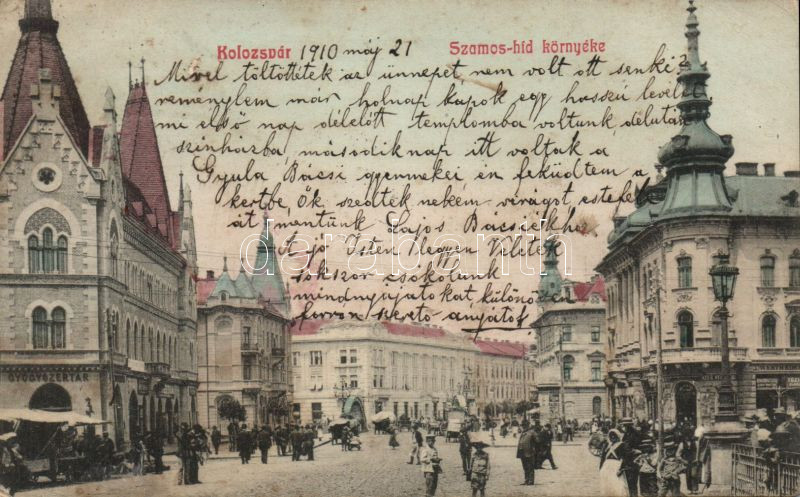 Kolozsvár 1910 máj 21 Szamos-híd környéke
Mivel töltöttétek az ünnepet nem volt ott senki?
reménylem már holnap kapok egy hosszú levelet
mi első nap délelőtt templomba voltunk délután
színházba, második nap itt voltak a
Gyula Bácsi gyermekei én feküdtem a
kertbe ők szedtek nekem virágot estefelé
át mentünk Lajos Bácsiékhoz
A jó Isten legyen Véletek
sokszor csókolunk
mindnyájatokat, különösen
forron szerető anyátok
darabanth
GYÓGYSZERTÁR